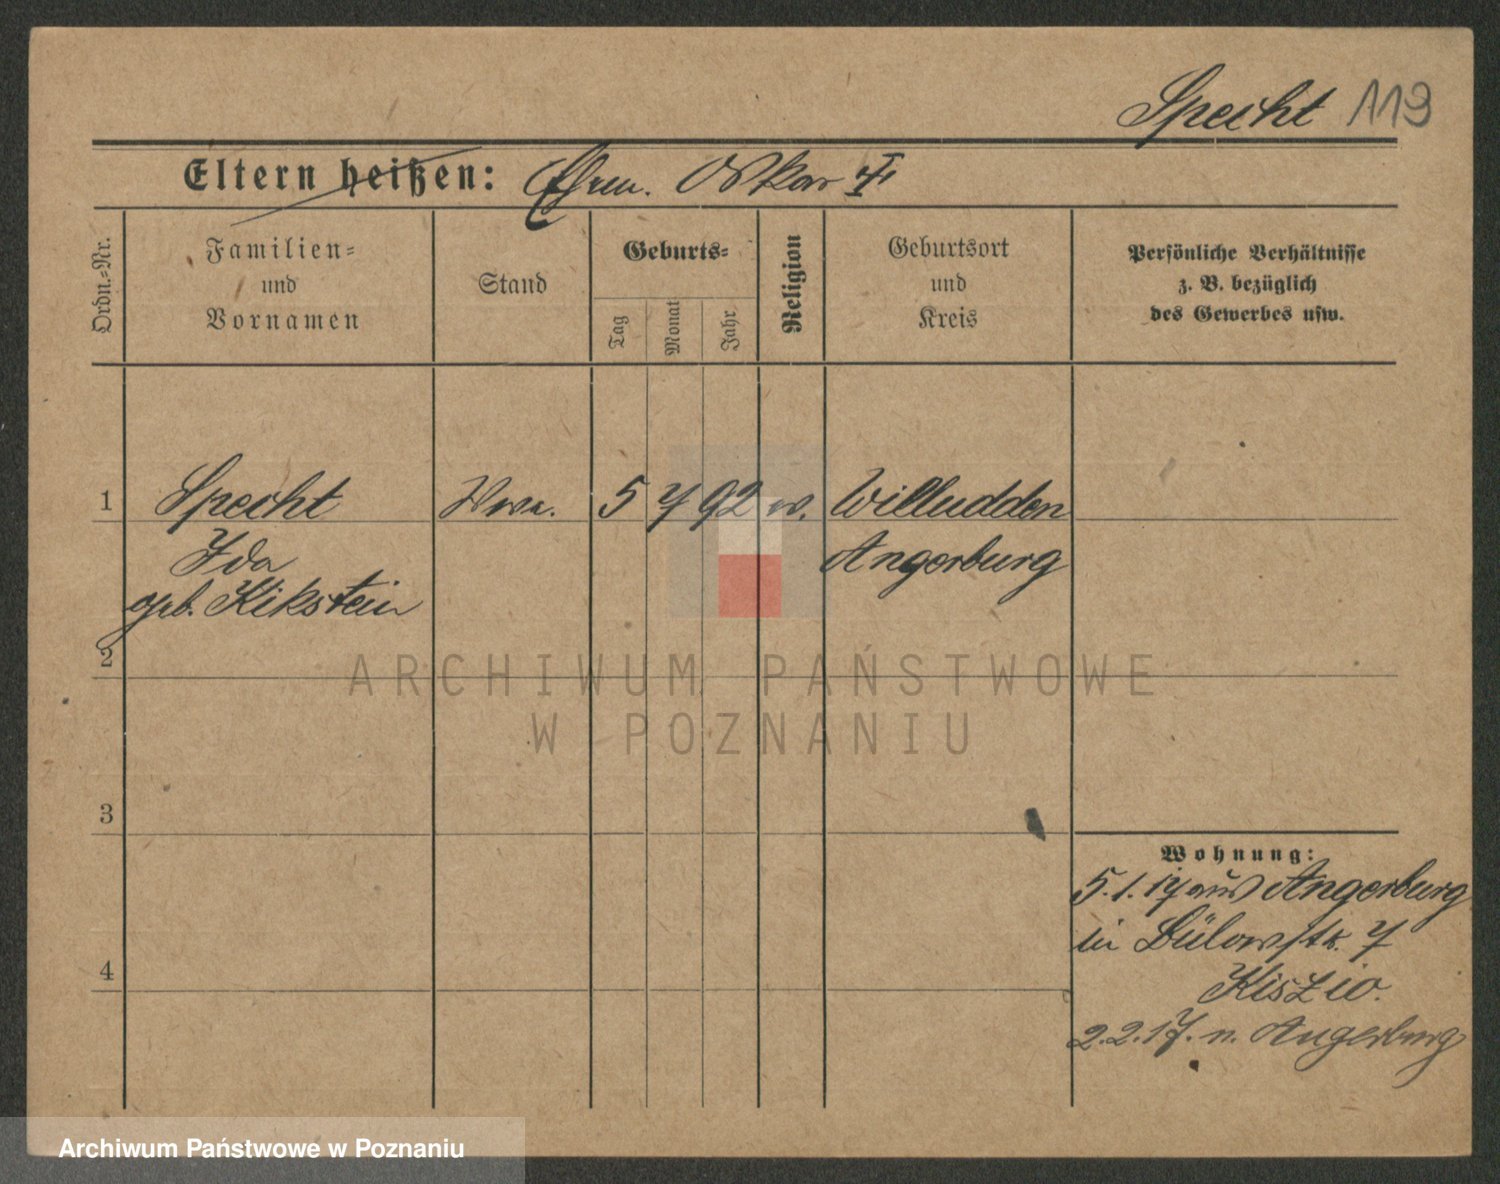 Specht 119
Eltern heißen: Ehem. Oskar
Ordn.-Nr.
Familien=
und
Vornamen
Stand
Geburts=
Tag
Monat
Jahr
Religion
Geburtsort
und
Kreis
Persönliche Verhältnisse
z. B. bezüglich
des Gewerbes usw.
1 Specht Wwe. 5 7 92 Willudden
Ida Angerburg
geb. Kikstein
2
3
4
Wohnung:
5.1.17 aus Angerburg
in Bülowstr. 7
2.2.17. n. Angerburg
ARCHIWUM PAŃSTWOWE
W POZNANIU
Archiwum Państwowe w Poznaniu